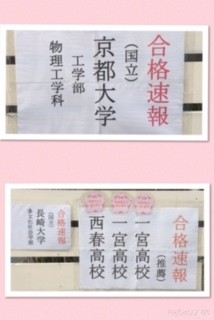 合格速報
（国立）
京都大学
工学部
物理工学科
合格速報
（推薦）
一宮高校
一宮高校
西春高校
合格速報
（国立）
長崎大学